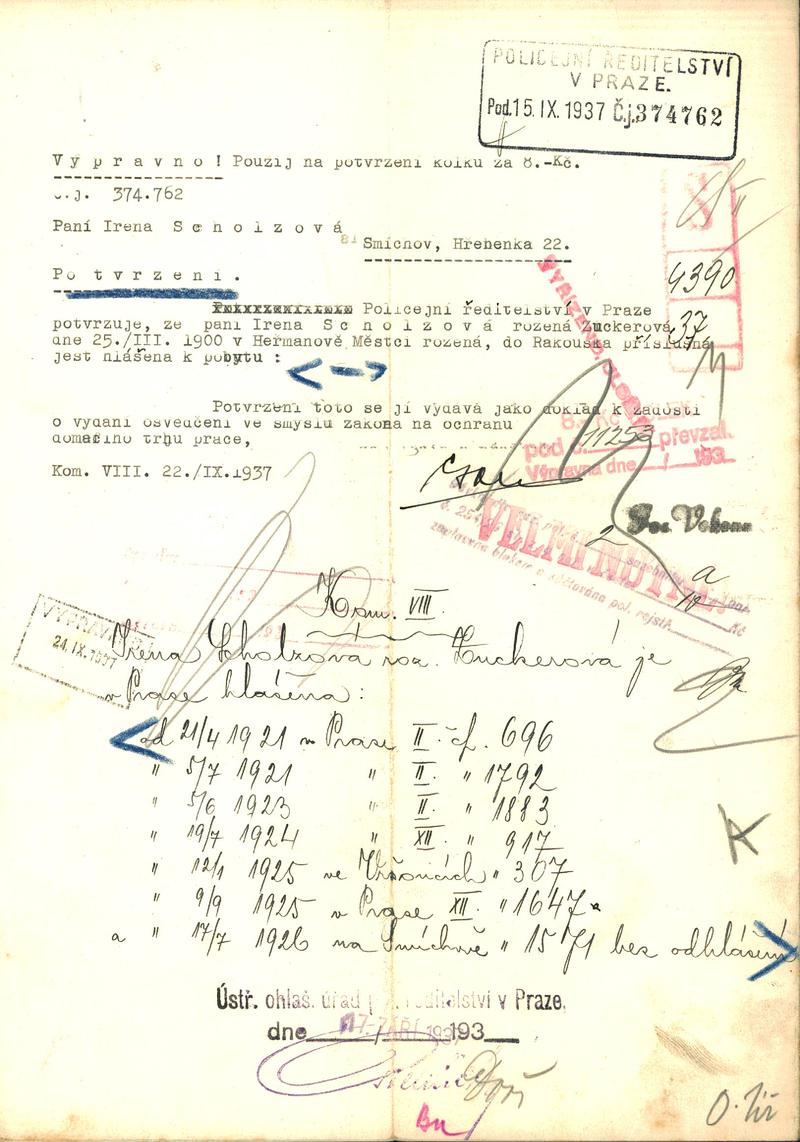 POLICEJNÍ ŘEDITELSTVÍ
V PRAZE.
Pod. 15. IX. 1937 Č.j. 374762
V y p r a v n o ! Použij na potvrzení kolku za 8.-Kč.
Č.j. 374.762
Paní Irena S c h o l z o v á
Smíchov, Hřebenka 22.
P o t v r z e n í .
Policejní ředitelství v Praze
potvrzuje, že paní Irena S c h o l z o v á rozená Zuckerová,
dne 25./III. 1900 v Heřmanově Městci rozená, do Rakouska příslušná
jest hlášena k pobytu :
Potvrzení toto se jí vydává jako doklad k žádosti
o vydání osvědčení ve smyslu zákona na ochranu
domácího trhu práce,
Kom. VIII. 22./IX.1937
4390
37
pod č. 11253 převzal.
Výpravna dne / 193
VELMI NUTNÉ
a
VÝPRAVENO
24. IX. 1937
Kom. VIII.
Irena Scholzová roz. Zuckerová je
v Praze hlášena:
od 21/4 1921 v Praze II. čp. 696
" 5/7 1921 " II. " 1792
" 5/6 1923 " II. " 1883
" 19/7 1924 " XII. " 917
" 12/1 1925 ve Vršovicích " 307
" 9/9 1925 v Praze XII. " 1647
a " 17/7 1926 na Smíchově " 1571 bez odhlášení
K
Ústř. ohlaš. úřad pol. ředitelství v Praze,
dne 17. ZÁŘÍ 1937 193